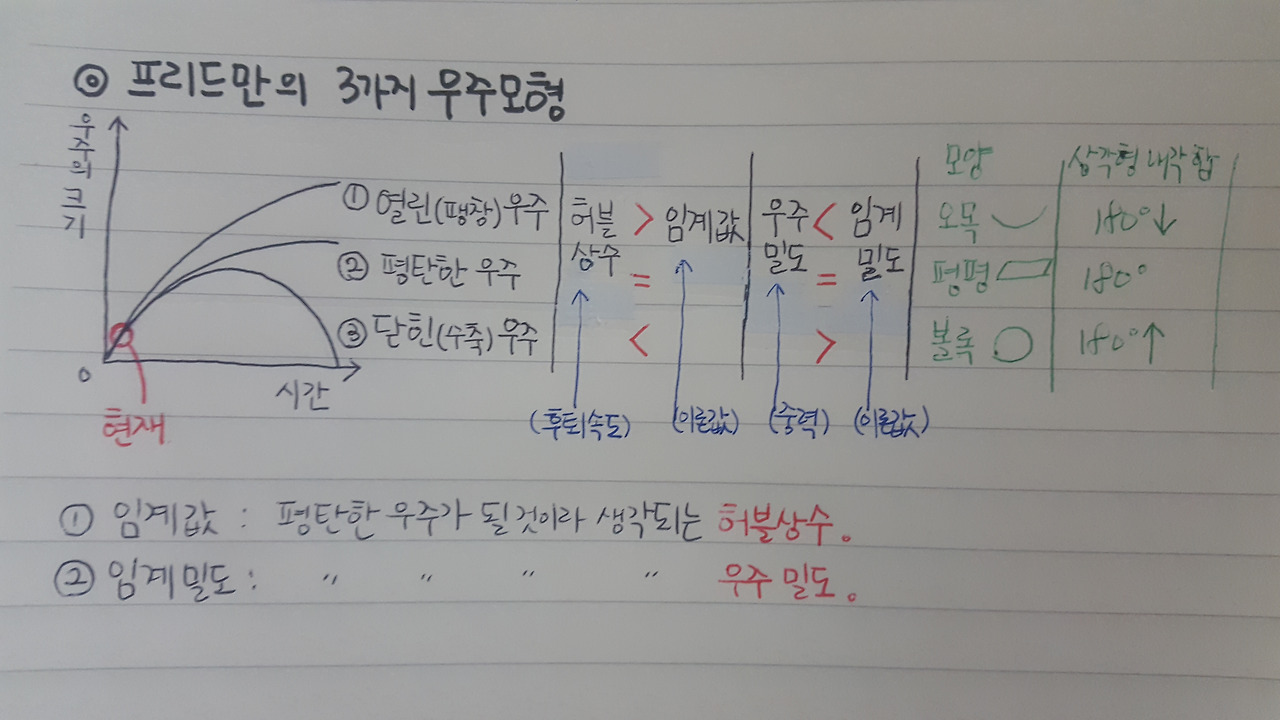 ◎ 프리드만의 3가지 우주모형
우주의 크기
모양 삼각형 내각합
① 열린(팽창)우주 허블상수 > 임계값 우주밀도 < 임계밀도 오목 180°↓
② 평탄한 우주 = = 평평 180°
③ 닫힌(수축)우주 < > 볼록 180°↑
0 시간
현재 (후퇴속도) (이론값) (중력) (이론값)
① 임계값 : 평탄한 우주가 될것이라 생각되는 허블상수.
② 임계밀도 : 〃 〃 〃 〃 우주 밀도.